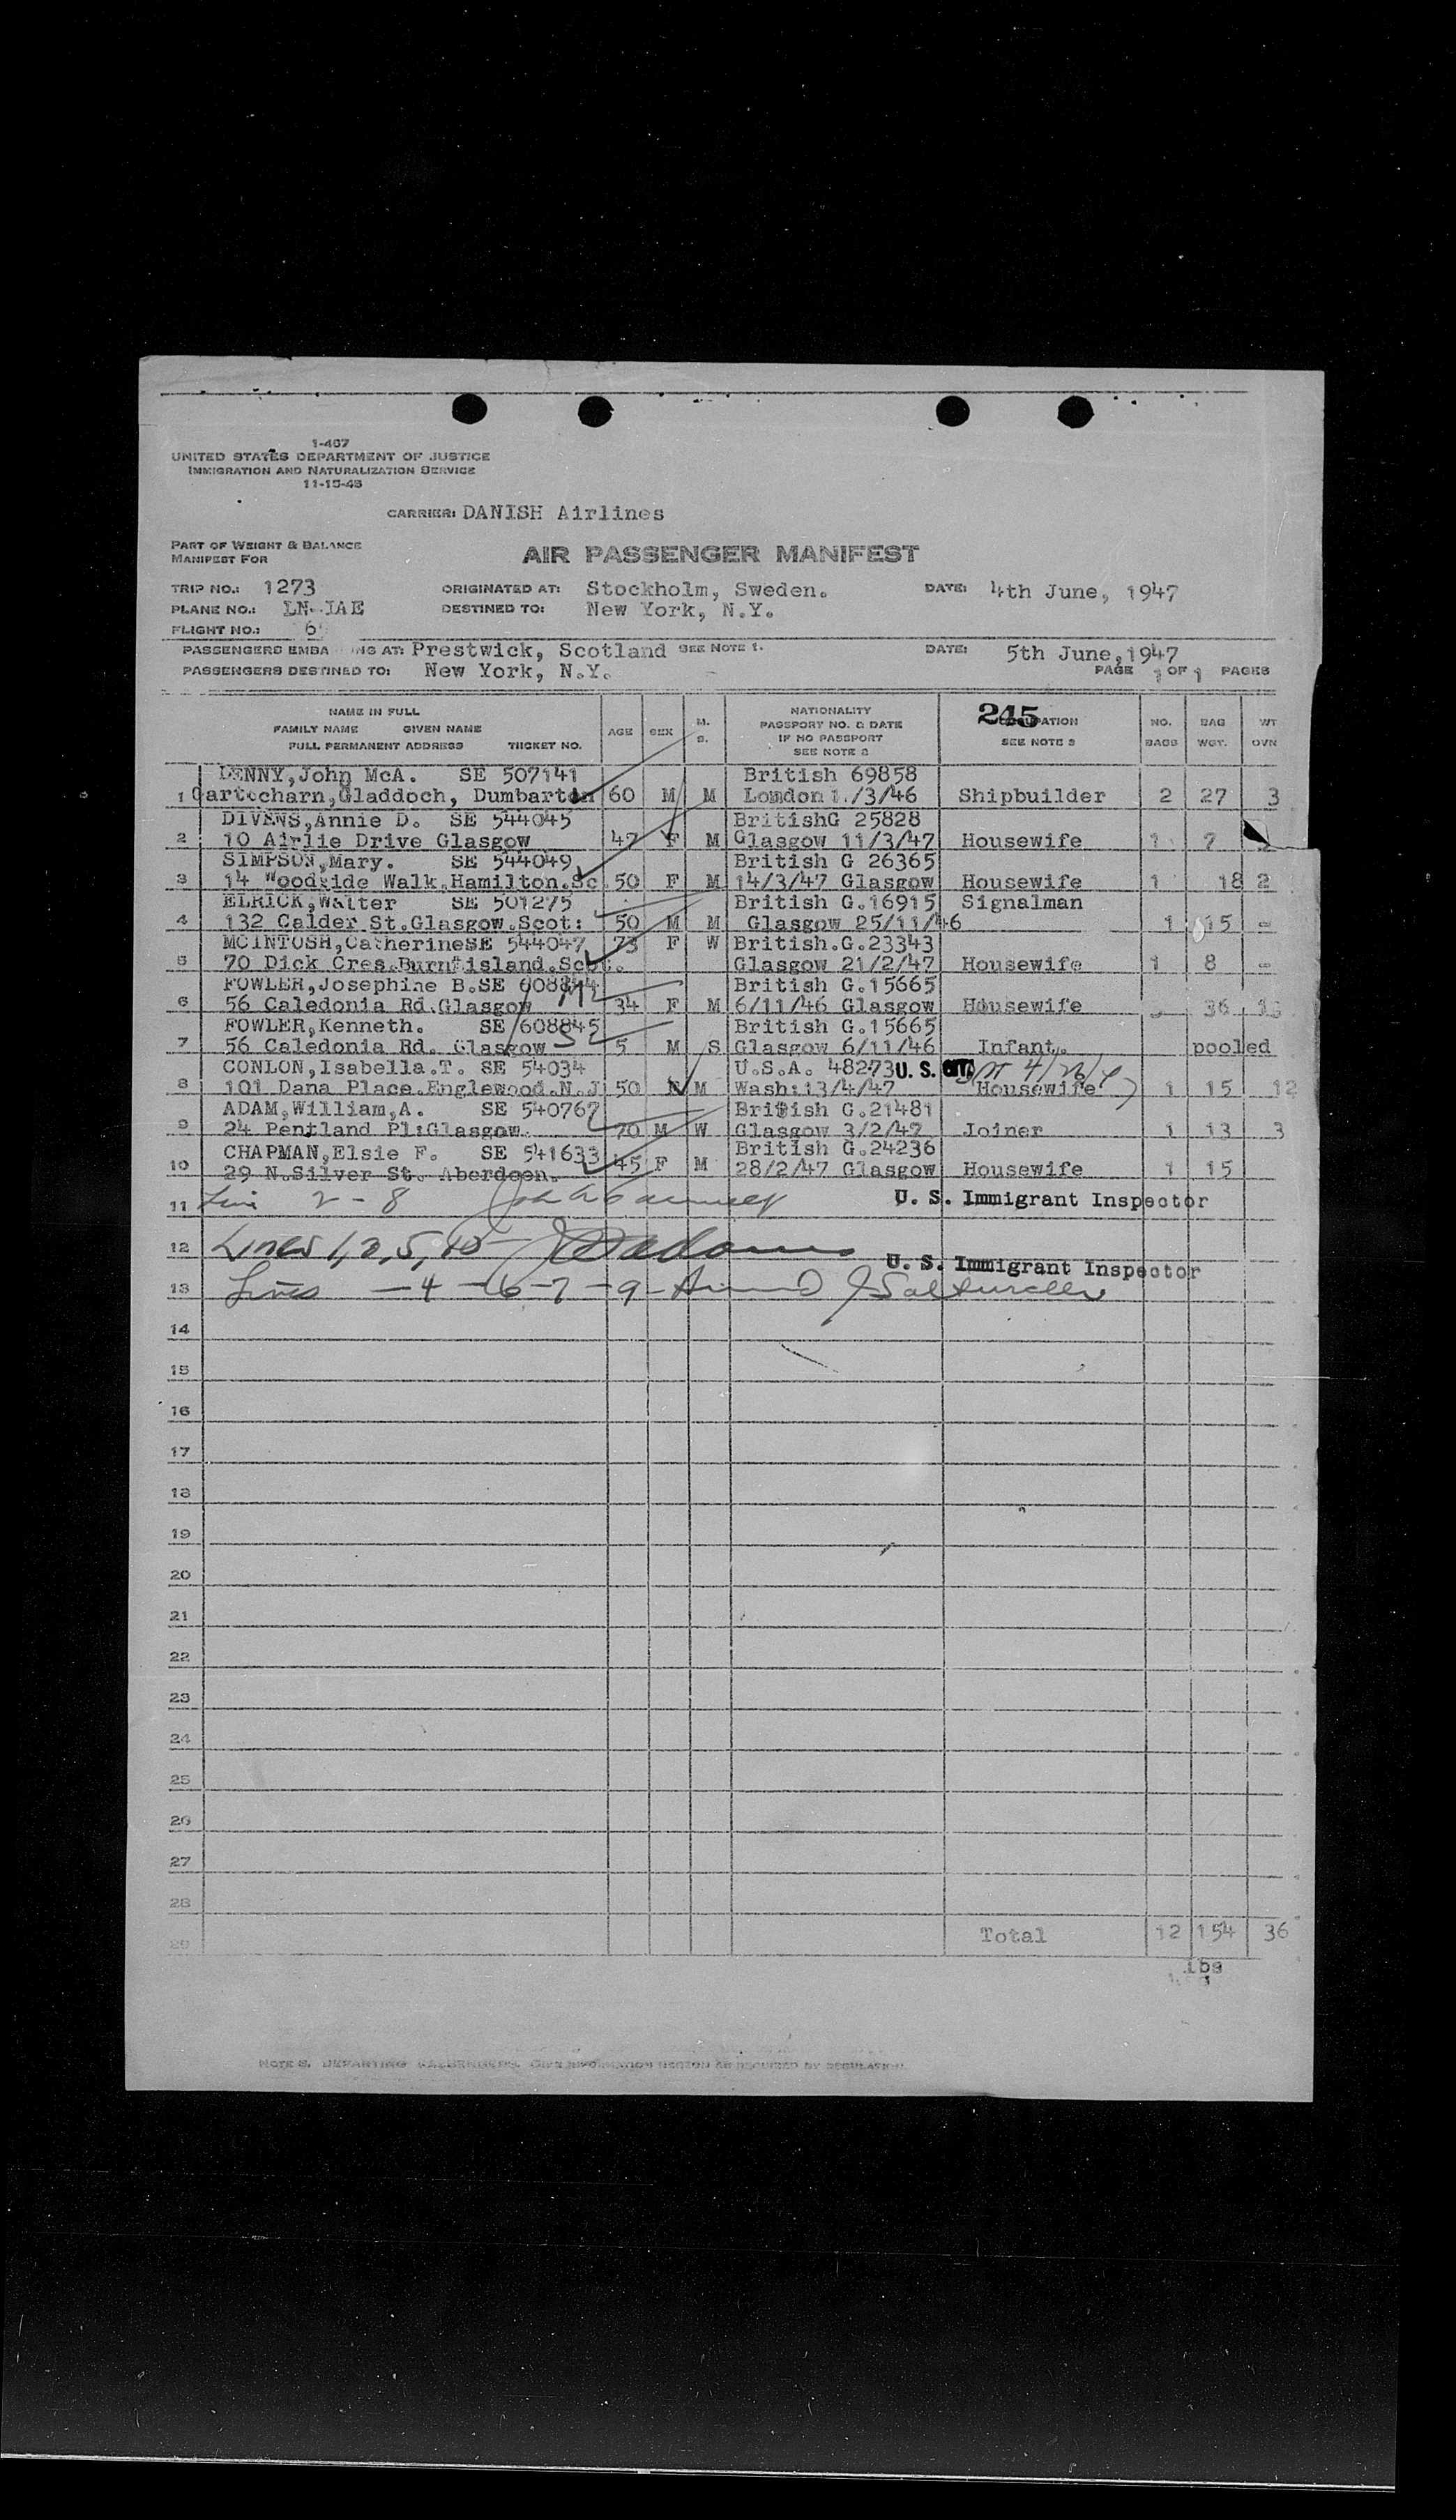 1-407
UNITED STATES DEPARTMENT OF JUSTICE
IMMIGRATION AND NATURALIZATION SERVICE
11-15-43
CARRIER: DANISH Airlines
PART OF WEIGHT & BALANCE
MANIFEST FOR
AIR PASSENGER MANIFEST
TRIP NO.: 1273 ORIGINATED AT: Stockholm, Sweden. DATE: 4th June, 1947
PLANE NO.: LN-IAE DESTINED TO: New York, N.Y.
FLIGHT NO.: 6
PASSENGERS EMBA NG AT: Prestwick, Scotland SEE NOTE 1. DATE: 5th June, 1947
PASSENGERS DESTINED TO: New York, N.Y. PAGE 1 OF 1 PAGES
NAME IN FULL
FAMILY NAME GIVEN NAME
FULL PERMANENT ADDRESS TICKET NO.
AGE SEX M. S.
NATIONALITY
PASSPORT NO. & DATE
IF NO PASSPORT
SEE NOTE 2
245
SEE NOTE 3
NO. BAGS BAG WGT. WT OVN
DENNY, John McA. SE 507141 British 69858
1 Cartocharn, Gladdoch, Dumbarton 60 M M London /3/46 Shipbuilder 2 27 3
DIVENS, Annie D. SE 544045 BritishG 25828
2 10 Airlie Drive Glasgow 47 F M Glasgow 11/3/47 Housewife 1 7
SIMPSON, Mary. SE 544049 British G 26365
3 14 Woodside Walk.Hamilton.Sc. 50 F M 14/3/47 Glasgow Housewife 1 18 2
ELRICK, Walter SE 501275 British G.16915 Signalman
4 132 Calder St.Glasgow.Scot: 50 M M Glasgow 25/11/46 1 15 -
MCINTOSH, CatherineSE 544047 73 F W British.G.23343
5 70 Dick Cres.Burntisland.Scot. Glasgow 21/2/47 Housewife 1 8 -
FOWLER, Josephine B.SE 608844 British G.15665
6 56 Caledonia Rd.Glasgow 34 F M 6/11/46 Glasgow Housewife 36 13
FOWLER, Kenneth. SE 608845 British G.15665
7 56 Caledonia Rd. Glasgow 5 M S Glasgow 6/11/46 Infant. pooled
CONLON, Isabella.T. SE 54034 U.S.A. 48273 U. S. CIT.
8 101 Dana Place.Englewood.N.J 50 M Wash:13/4/47 Housewife 1 15 12
ADAM, William, A. SE 540767 British G.21481
9 24 Pentland Pl:Glasgow. 70 M W Glasgow 3/2/47 Joiner 1 13 3
CHAPMAN, Elsie F. SE 541633 British G.24236
10 29 N.Silver St. Aberdeen. 45 F M 28/2/47 Glasgow Housewife 1 15
11 2 - 8 U. S. Immigrant Inspector
12 Lines
U. S. Immigrant Inspector
13 Lines - 4 - 6 - 7 - 9
14
15
16
17
18
19
20
21
22
23
24
25
26
27
28
29 Total 12 154 36
lbs